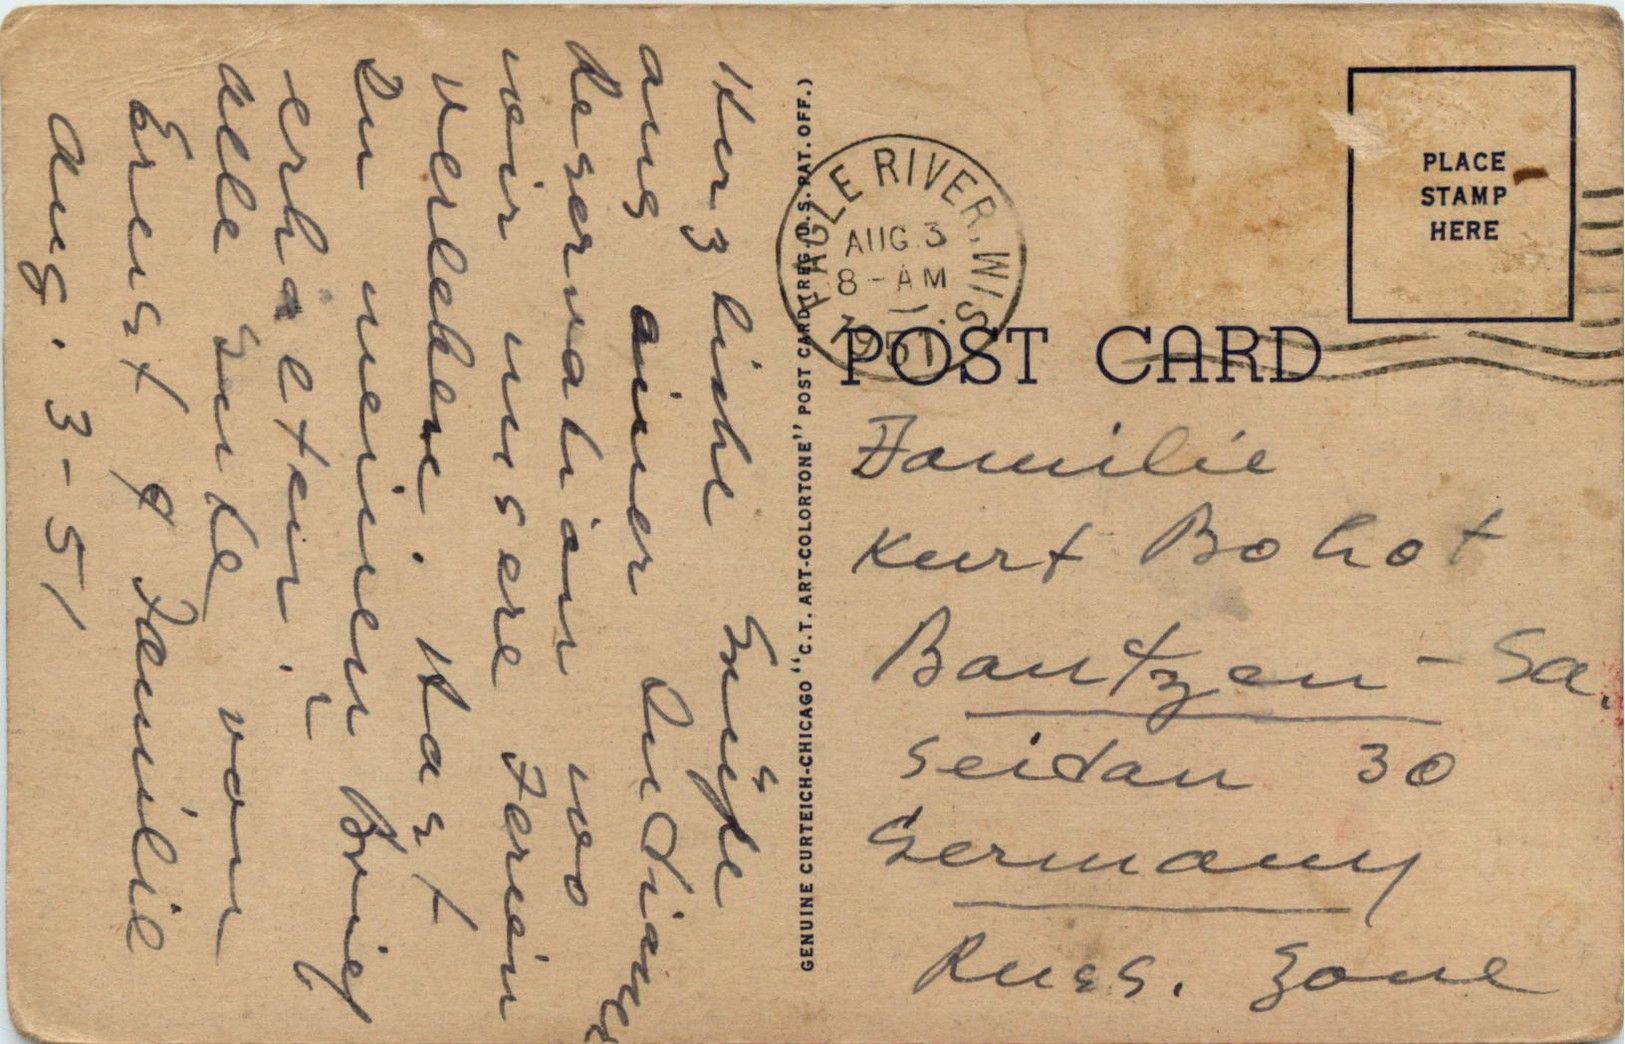 Herzliche Grüße
aus einer Indianer
Reservation wo
wir unsere Ferien
verleben. Hast
Du meinen Brief
erhalten?
alle Gute von
Ernst & Familie
Aug. 3-51
GENUINE CURTEICH-CHICAGO "C.T. ART-COLORTONE" POST CARD (REG. U.S. PAT. OFF.)
EAGLE RIVER, WIS.
AUG 3
8-AM
1951
PLACE
STAMP
HERE
POST CARD
Familie
Kurt Bohot
Bautzen - Sa.
Seidau 30
Germany
Russ. Zone